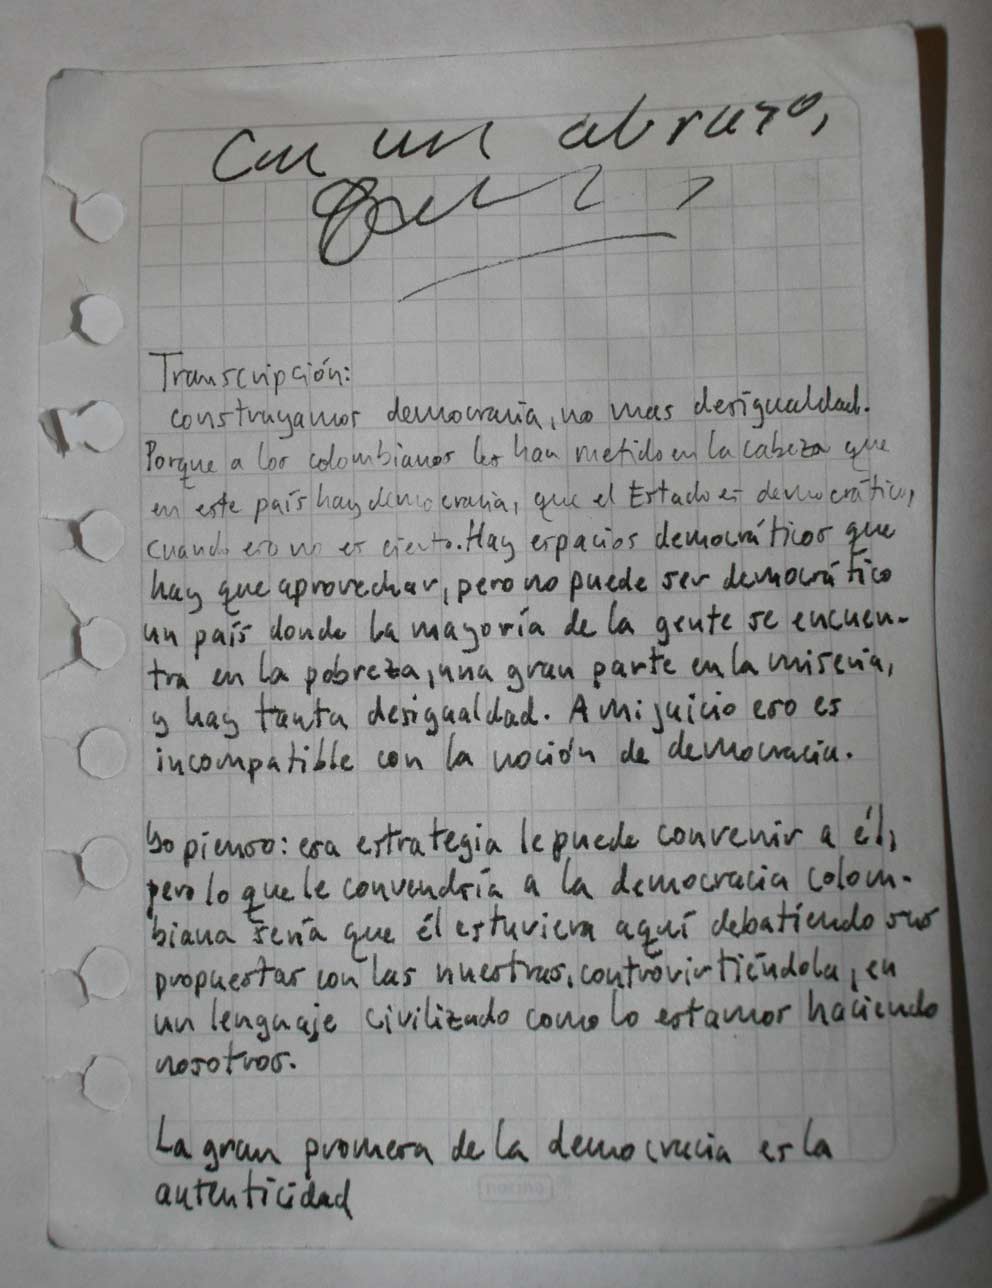 Con un abrazo,
Transcripción:
construyamos democracia, no mas desigualdad.
Porque a los colombianos les han metido en la cabeza que
en este país hay democracia, que el Estado es democrático,
cuando eso no es cierto. Hay espacios democráticos que
hay que aprovechar, pero no puede ser democrático
un país donde la mayoría de la gente se encuen-
tra en la pobreza, una gran parte en la miseria,
y hay tanta desigualdad. A mi juicio eso es
incompatible con la noción de democracia.
Yo pienso: esa estrategia le puede convenir a él,
pero lo que le convendría a la democracia colom-
biana sería que él estuviera aquí debatiendo sus
propuestas con las nuestras, controvirtiéndola, en
un lenguaje civilizado como lo estamos haciendo
nosotros.
La gran promesa de la democracia es la
autenticidad
norma